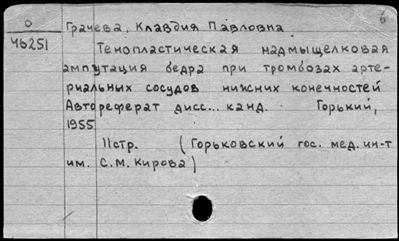 О
46251
Грачева, Клавдия Павловна.
Тенопластическая надмыщелковая
ампутация бедра при тромбозах арте-
риальных сосудов нижних конечностей
Автореферат дисс... канд. Горький,
1955
11стр. (Горьковский гос. мед. ин-т
им. С. М. Кирова)